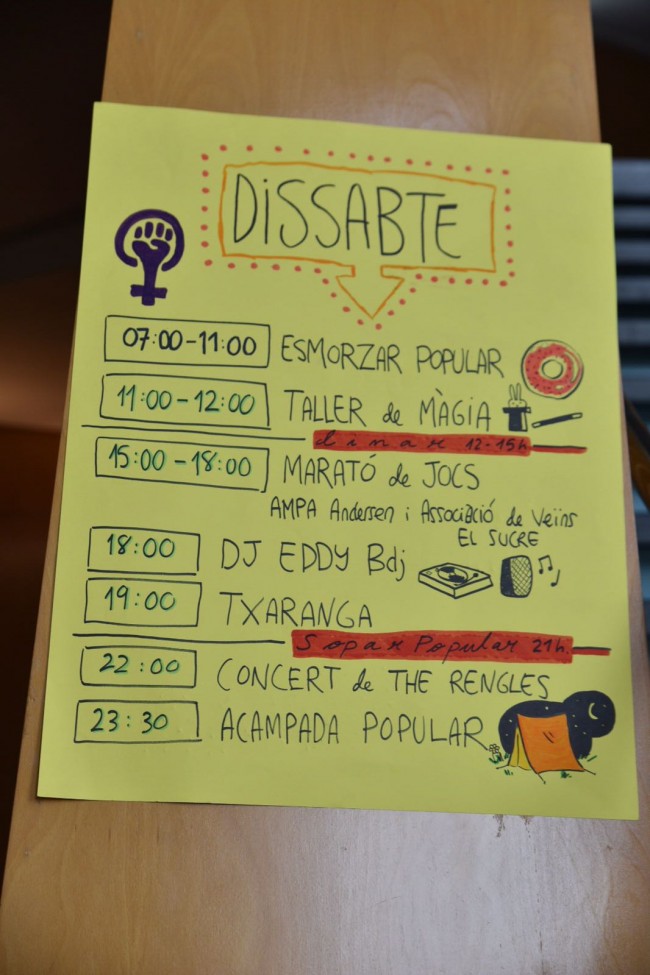 DiSSABTE
07:00-11:00 ESMORZAR POPULAR
11:00-12:00 TALLER de MÀGIA
dinar 12-15h
15:00-18:00 MARATÓ de JOCS
AMPA Andersen i Associació de Veïns
EL SUCRE
18:00 DJ EDDY Bdj
19:00 TXARANGA
Sopar Popular 21h.
22:00 CONCERT de THE RENGLES
23:30 ACAMPADA POPULAR